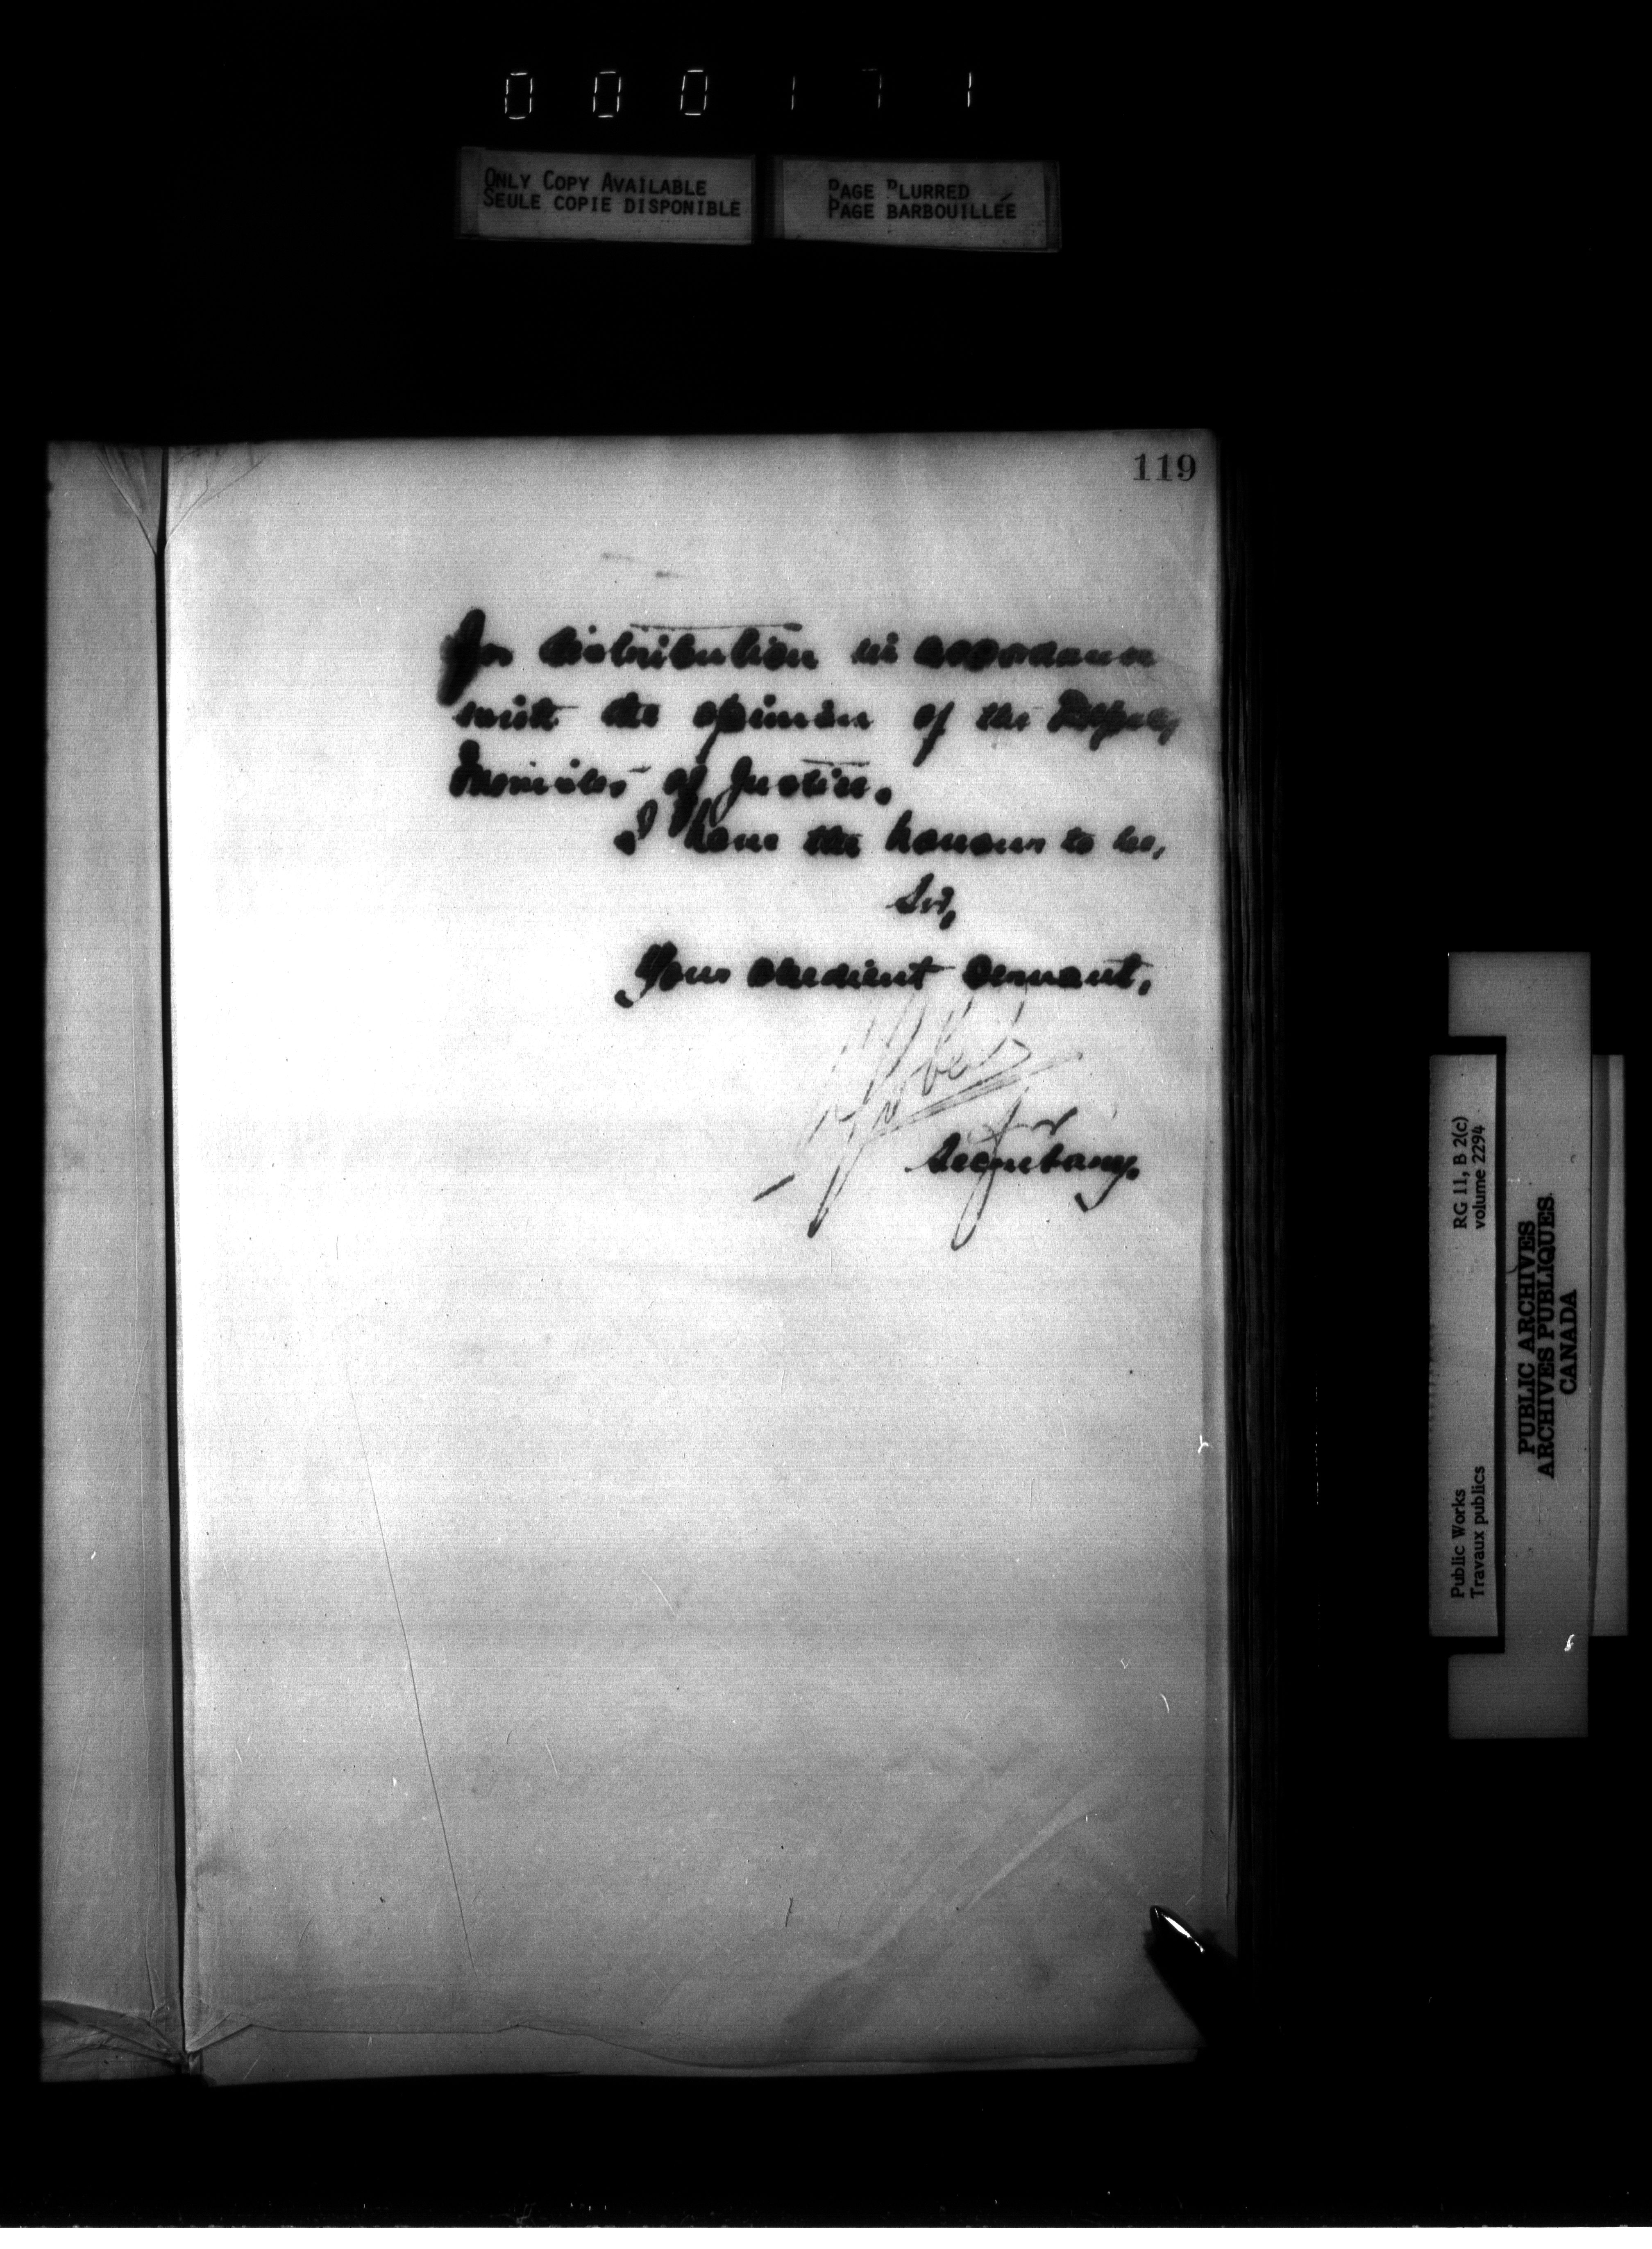 000171
ONLY COPY AVAILABLE
SEULE COPIE DISPONIBLE
PAGE BLURRED
PAGE BARBOUILLÉE
119
for distribution in accordance
with the opinion of the Deputy
Minister of Justice.
I have the honour to be,
Sir,
Your obedient servant,
for
Secretary.
Public Works
Travaux publics
RG 11, B 2(c)
volume 2294
PUBLIC ARCHIVES
ARCHIVES PUBLIQUES
CANADA